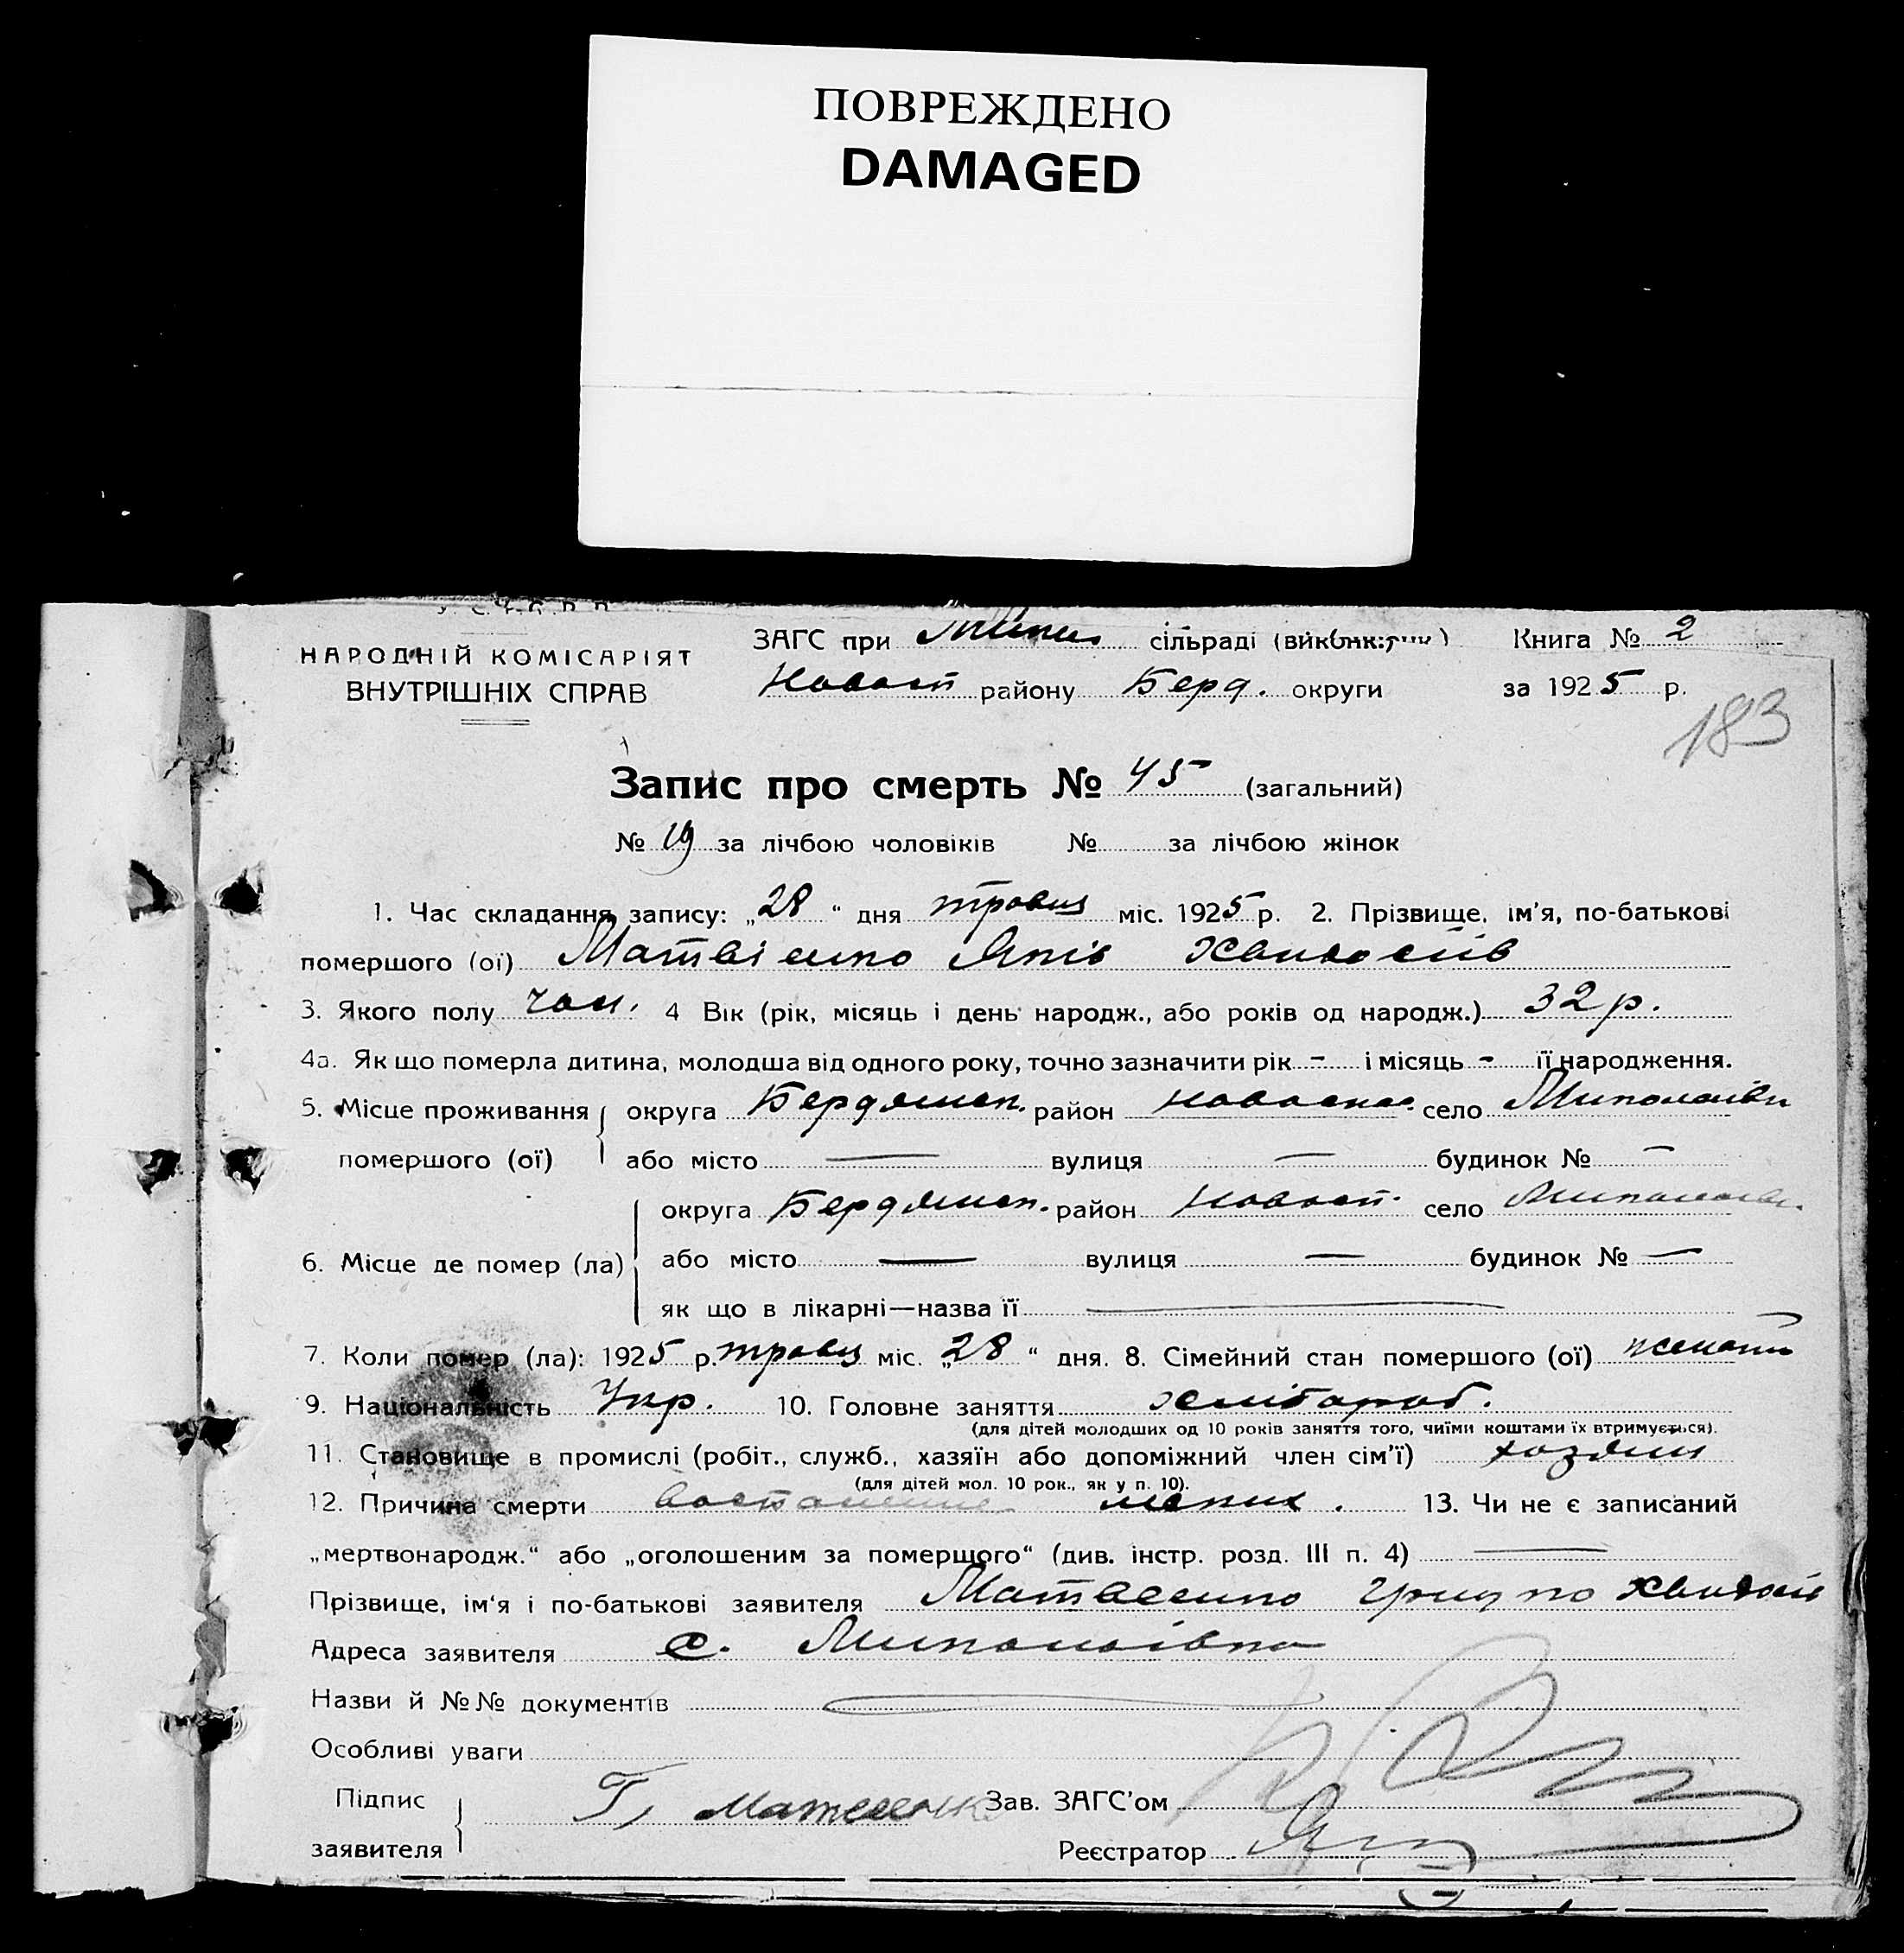 ПОВРЕЖДЕНО
DAMAGED
У. С. Р. Р.
ЗАГС при Микол сільраді (виконк.) Книга № 2
НАРОДНІЙ КОМІСАРІЯТ
ВНУТРІШНІХ СПРАВ
Новосп району Берд. округи за 1925 р.
183
Запис про смерть № 45 (загальний)
№ 19 за лічбою чоловіків № за лічбою жінок
1. Час складання запису: „28“ дня травця міс. 1925 р. 2. Прізвище, ім'я, по-батькові
помершого (ої) Матвіенко Яків
3. Якого полу чол. 4 Вік (рік, місяць і день народж., або років од народж.) 32 р.
4а. Як що померла дитина, молодша від одного року, точно зазначити рік - і місяць - її народження.
5. Місце проживання округа Бердянськ. район Новоспас. село Миколаівки
помершого (ої) або місто — вулиця — будинок № —
округа Бердянськ. район Новосп. село Миколаівк.
6. Місце де помер (ла) або місто — вулиця — будинок № —
як що в лікарні—назва її —
7. Коли помер (ла): 1925 р. травця міс. „28“ дня. 8. Сімейний стан помершого (ої) женатий
9. Національність Укр. 10. Головне заняття хлібороб.
(для дітей молодших од 10 років заняття того, чиїми коштами їх втримується).
11. Становище в промислі (робіт., служб., хазяїн або допоміжний член сім'ї) хозяин
(для дітей мол. 10 рок., як у п. 10).
12. Причина смерти воспаление легких. 13. Чи не є записаний
„мертвонародж.“ або „оголошеним за померщого“ (див. інстр. розд. III п. 4) —
Прізвище, ім'я і по-батькові заявителя Матвеенко Грицко
Адреса заявителя с. Миколаівка
Назви й №№ документів —
Особливі уваги
Підпис Г. Матвеенко Зав. ЗАГС'ом
заявителя Реєстратор